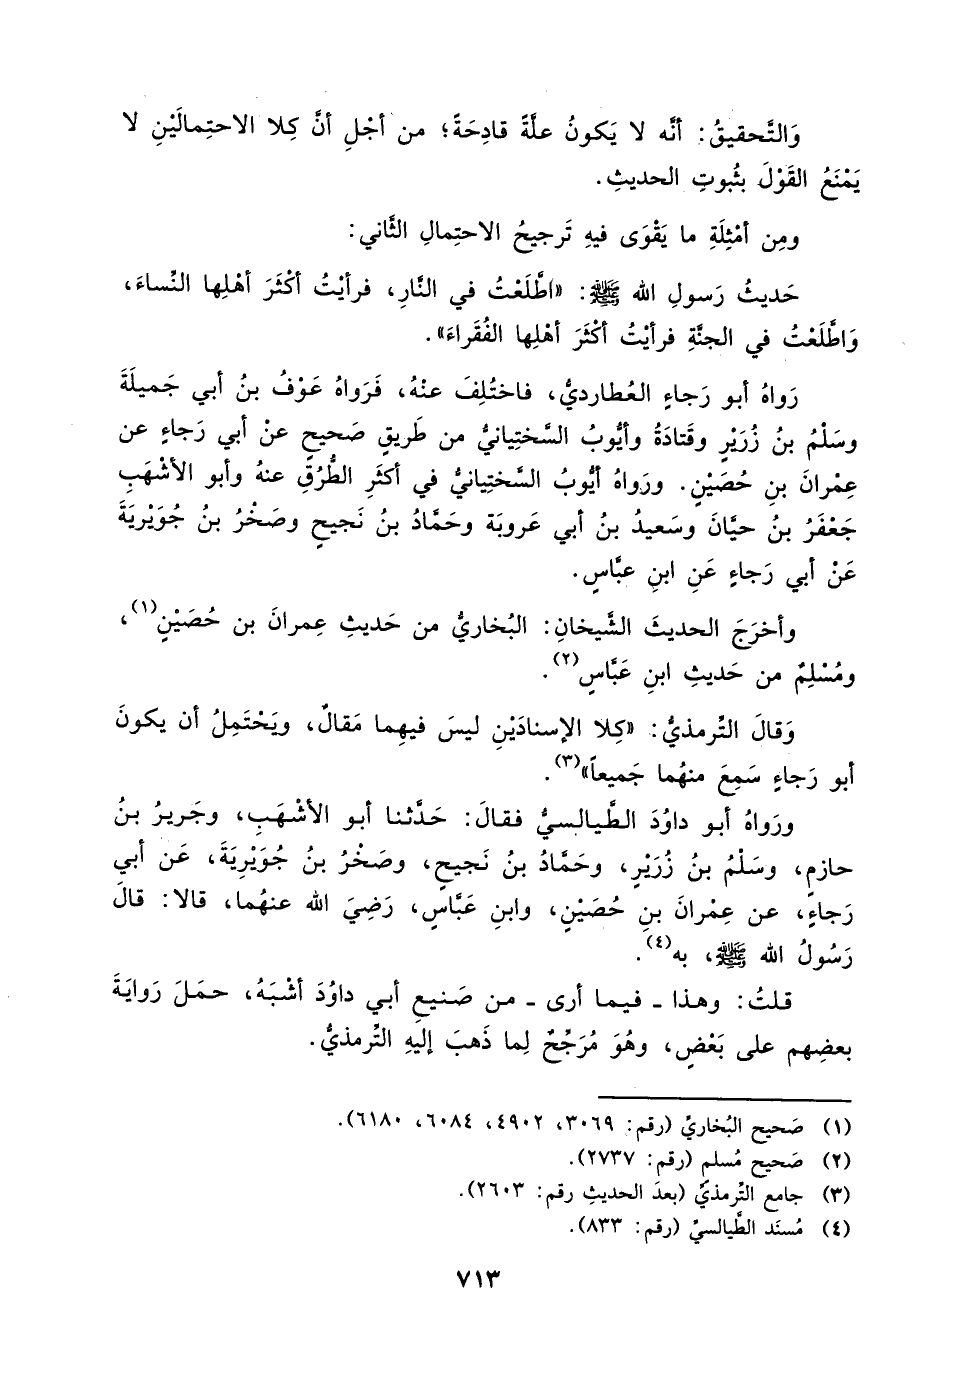 وَالتَّحقيقُ: أنَّه لا يَكونُ علَّةً قادِحَةً؛ من أجْلِ أنَّ كِلا الاحتِمالَيْنِ لا
يَمْنَعُ القَوْلَ بثُبوتِ الحديثِ.
ومِن أمْثِلَةِ ما يَقْوَى فيهِ تَرجيحُ الاحتِمالِ الثَّاني:
حَديثُ رَسولِ الله ﷺ: «اطَّلَعْتُ في النَّارِ، فرأيْتُ أكْثَرَ أهْلِها النِّساءَ،
وَاطَّلَعْتُ في الجنَّةِ فرأيْتُ أكْثَرَ أهْلِها الفُقَراءَ».
رَواهُ أبو رَجاءٍ العُطارديُّ، فاختُلِفَ عنْهُ، فَرَواهُ عَوْفُ بنُ أبي جَميلَةَ
وسَلْمُ بنُ زُرَيْرٍ وقَتادَةُ وأيُّوبُ السَّختِيانيُّ من طَريقٍ صَحيحٍ عنْ أبي رَجاءٍ عن
عِمْرانَ بنِ حُصَيْنٍ. ورَواهُ أيُّوبُ السَّختِيانيُّ في أكثَرِ الطُّرُقِ عنهُ وأبو الأشْهَبِ
جَعْفَرُ بنُ حيَّانَ وسَعيدُ بنُ أبي عَروبَة وحَمَّادُ بنُ نَجيحٍ وصَخْرُ بنُ جُوَيْريَةَ
عَنْ أبي رَجاءٍ عَنِ ابنِ عبَّاسٍ.
وأخرَجَ الحديثَ الشَّيخانِ: البُخاريُّ من حَديثِ عِمرانَ بن حُصَيْنٍ(١)،
ومُسْلِمٌ من حَديثِ ابنِ عَبَّاسٍ(٢).
وَقالَ التِّرمذيُّ: «كِلا الإسنادَيْنِ ليسَ فيهِما مَقالٌ، ويَحْتَمِلُ أن يكونَ
أبو رَجاءٍ سَمِعَ منهُما جَميعاً»(٣).
ورَواهُ أبو داوُدَ الطَّيالسيُّ فقالَ: حَدَّثنا أبو الأشْهَبِ، وجَريرُ بنُ
حازمٍ، وسَلْمُ بنُ زُرَيْرٍ، وحَمَّادُ بنُ نَجيحٍ، وصَخْرُ بنُ جُوَيْريَةَ، عَن أبي
رَجاءٍ، عن عِمْرانَ بنِ حُصَيْنٍ، وابنِ عَبَّاسٍ، رَضِيَ الله عنهُما، قالا: قالَ
رَسُولُ الله ﷺ، به(٤).
قلتُ: وهذا ـ فيما أرى ـ من صَنيعِ أبي داوُدَ أشْبَهُ، حمَلَ رَوايَةَ
بعضِهم على بَعْضٍ، وهُوَ مُرَجِّحٌ لِما ذَهبَ إليَهِ التِّرمذيُّ.
(١) صَحيح البُخاريِّ (رقم: ٣٠٦٩، ٤٩٠٢، ٦٠٨٤، ٦١٨٠).
(٢) صَحيح مُسلمٍ (رقم: ٢٧٣٧).
(٣) جامع التِّرمذيِّ (بعدَ الحديثِ رقم: ٢٦٠٣).
(٤) مُسنَد الطَّيالسيِّ (رقم: ٨٣٣).
٧١٣